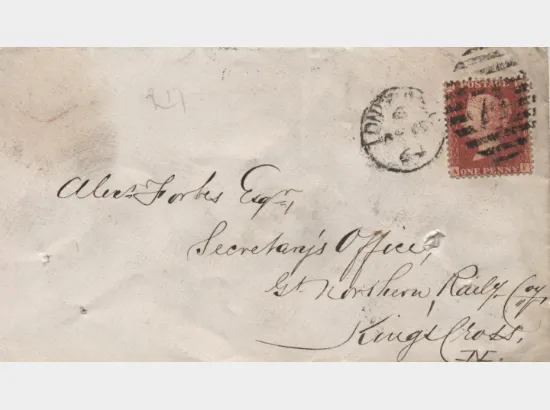 217
LONDON
POSTAGE
ONE PENNY
Alexr Forbes Esqr,
Secretary's Office,
Gt. Northern Raily Coy
Kings Cross,
N.